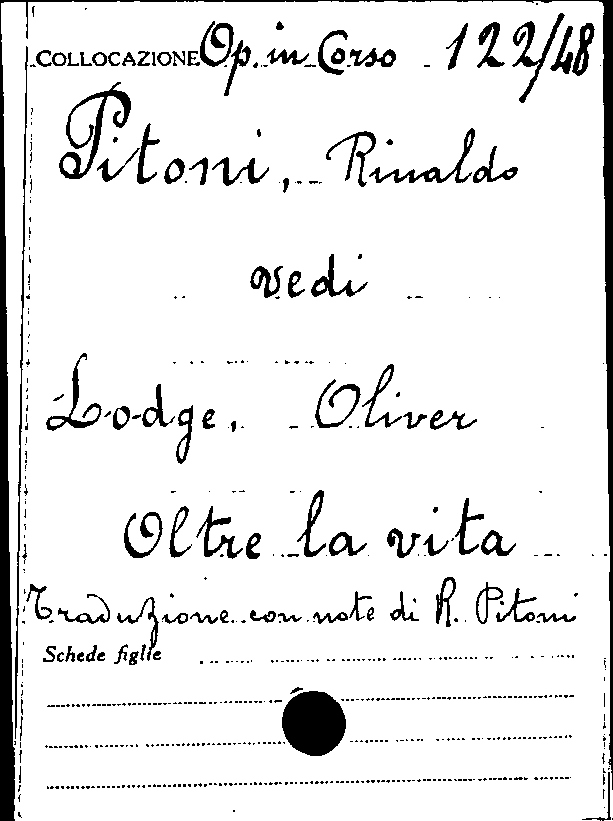 COLLOCAZIONE Op. in Corso 122/48
Pitoni, Rinaldo
vedi
Lodge, Oliver
Oltre la vita
Traduzione con note di R. Pitoni
Schede figlie